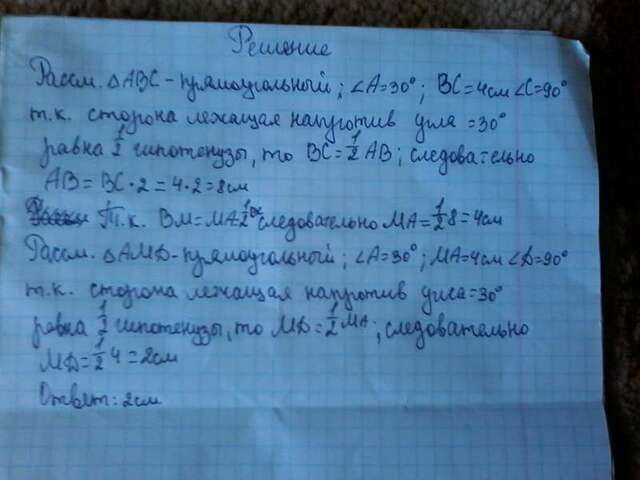 Решение
Рассм. △ABC - прямоугольный; ∠A=30°; BC=4см ∠C=90°
т.к. сторона лежащая напротив угла =30°
равна 1/2 гипотенузы, то BC=1/2 AB; следовательно
AB=BC·2=4·2=8см
Т.к. BM=MA=1/2 следовательно MA=1/2 8=4см
Рассм. △AMD-прямоугольный; ∠A=30°; MA=4см ∠D=90°
т.к. сторона лежащая напротив угла=30°
равна 1/2 гипотенузы, то MD=1/2 MA; следовательно
MD=1/2 4=2см
Ответ: 2см